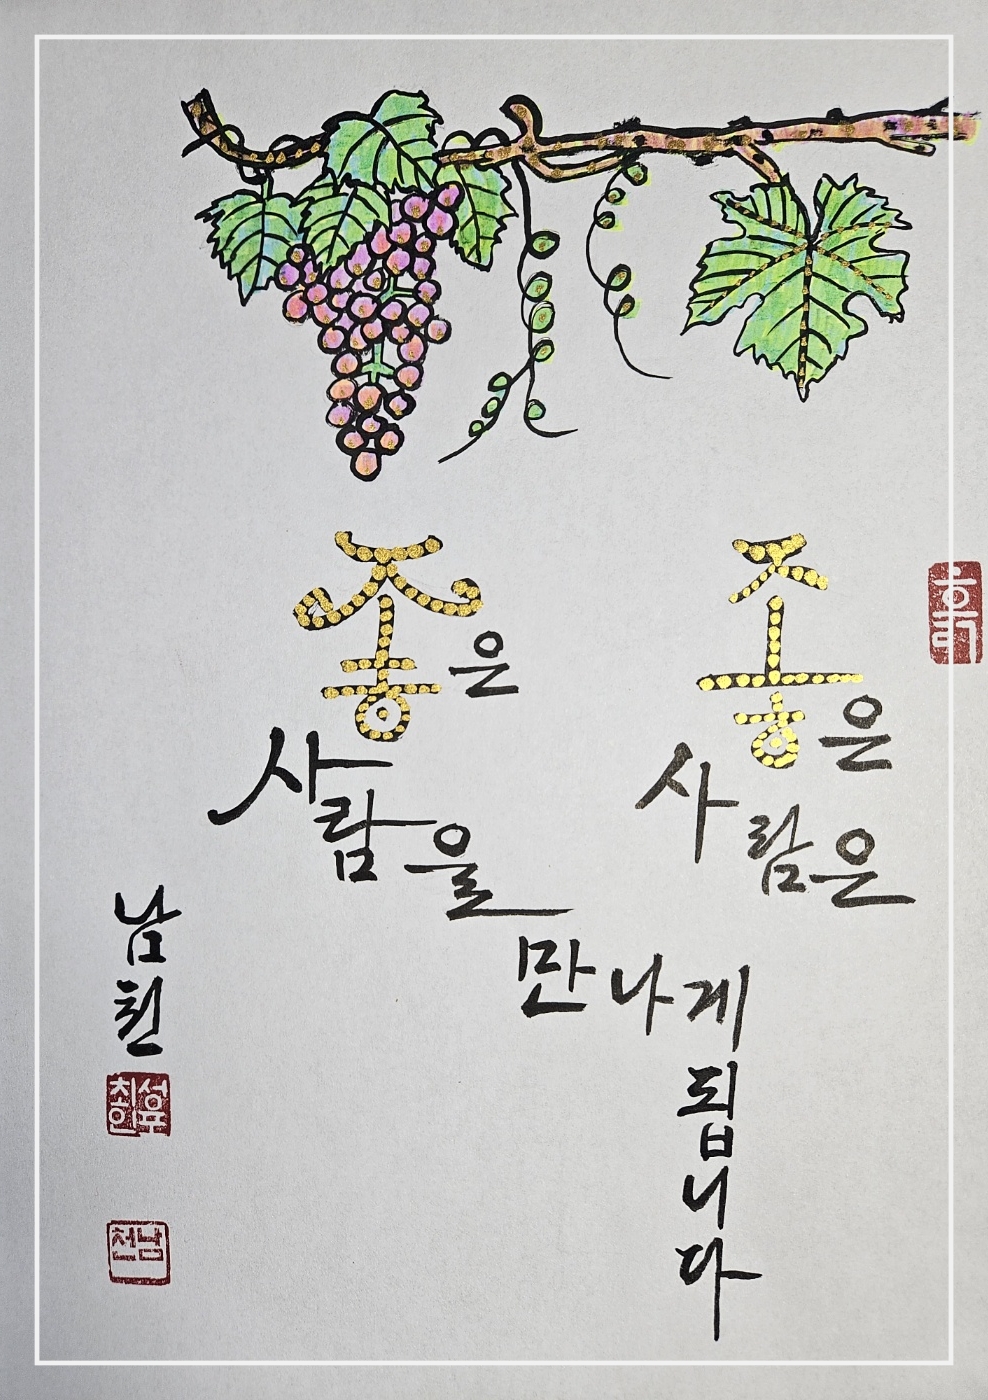 좋은
사람은
좋은
사람을
만나게
됩니다
남천
남천